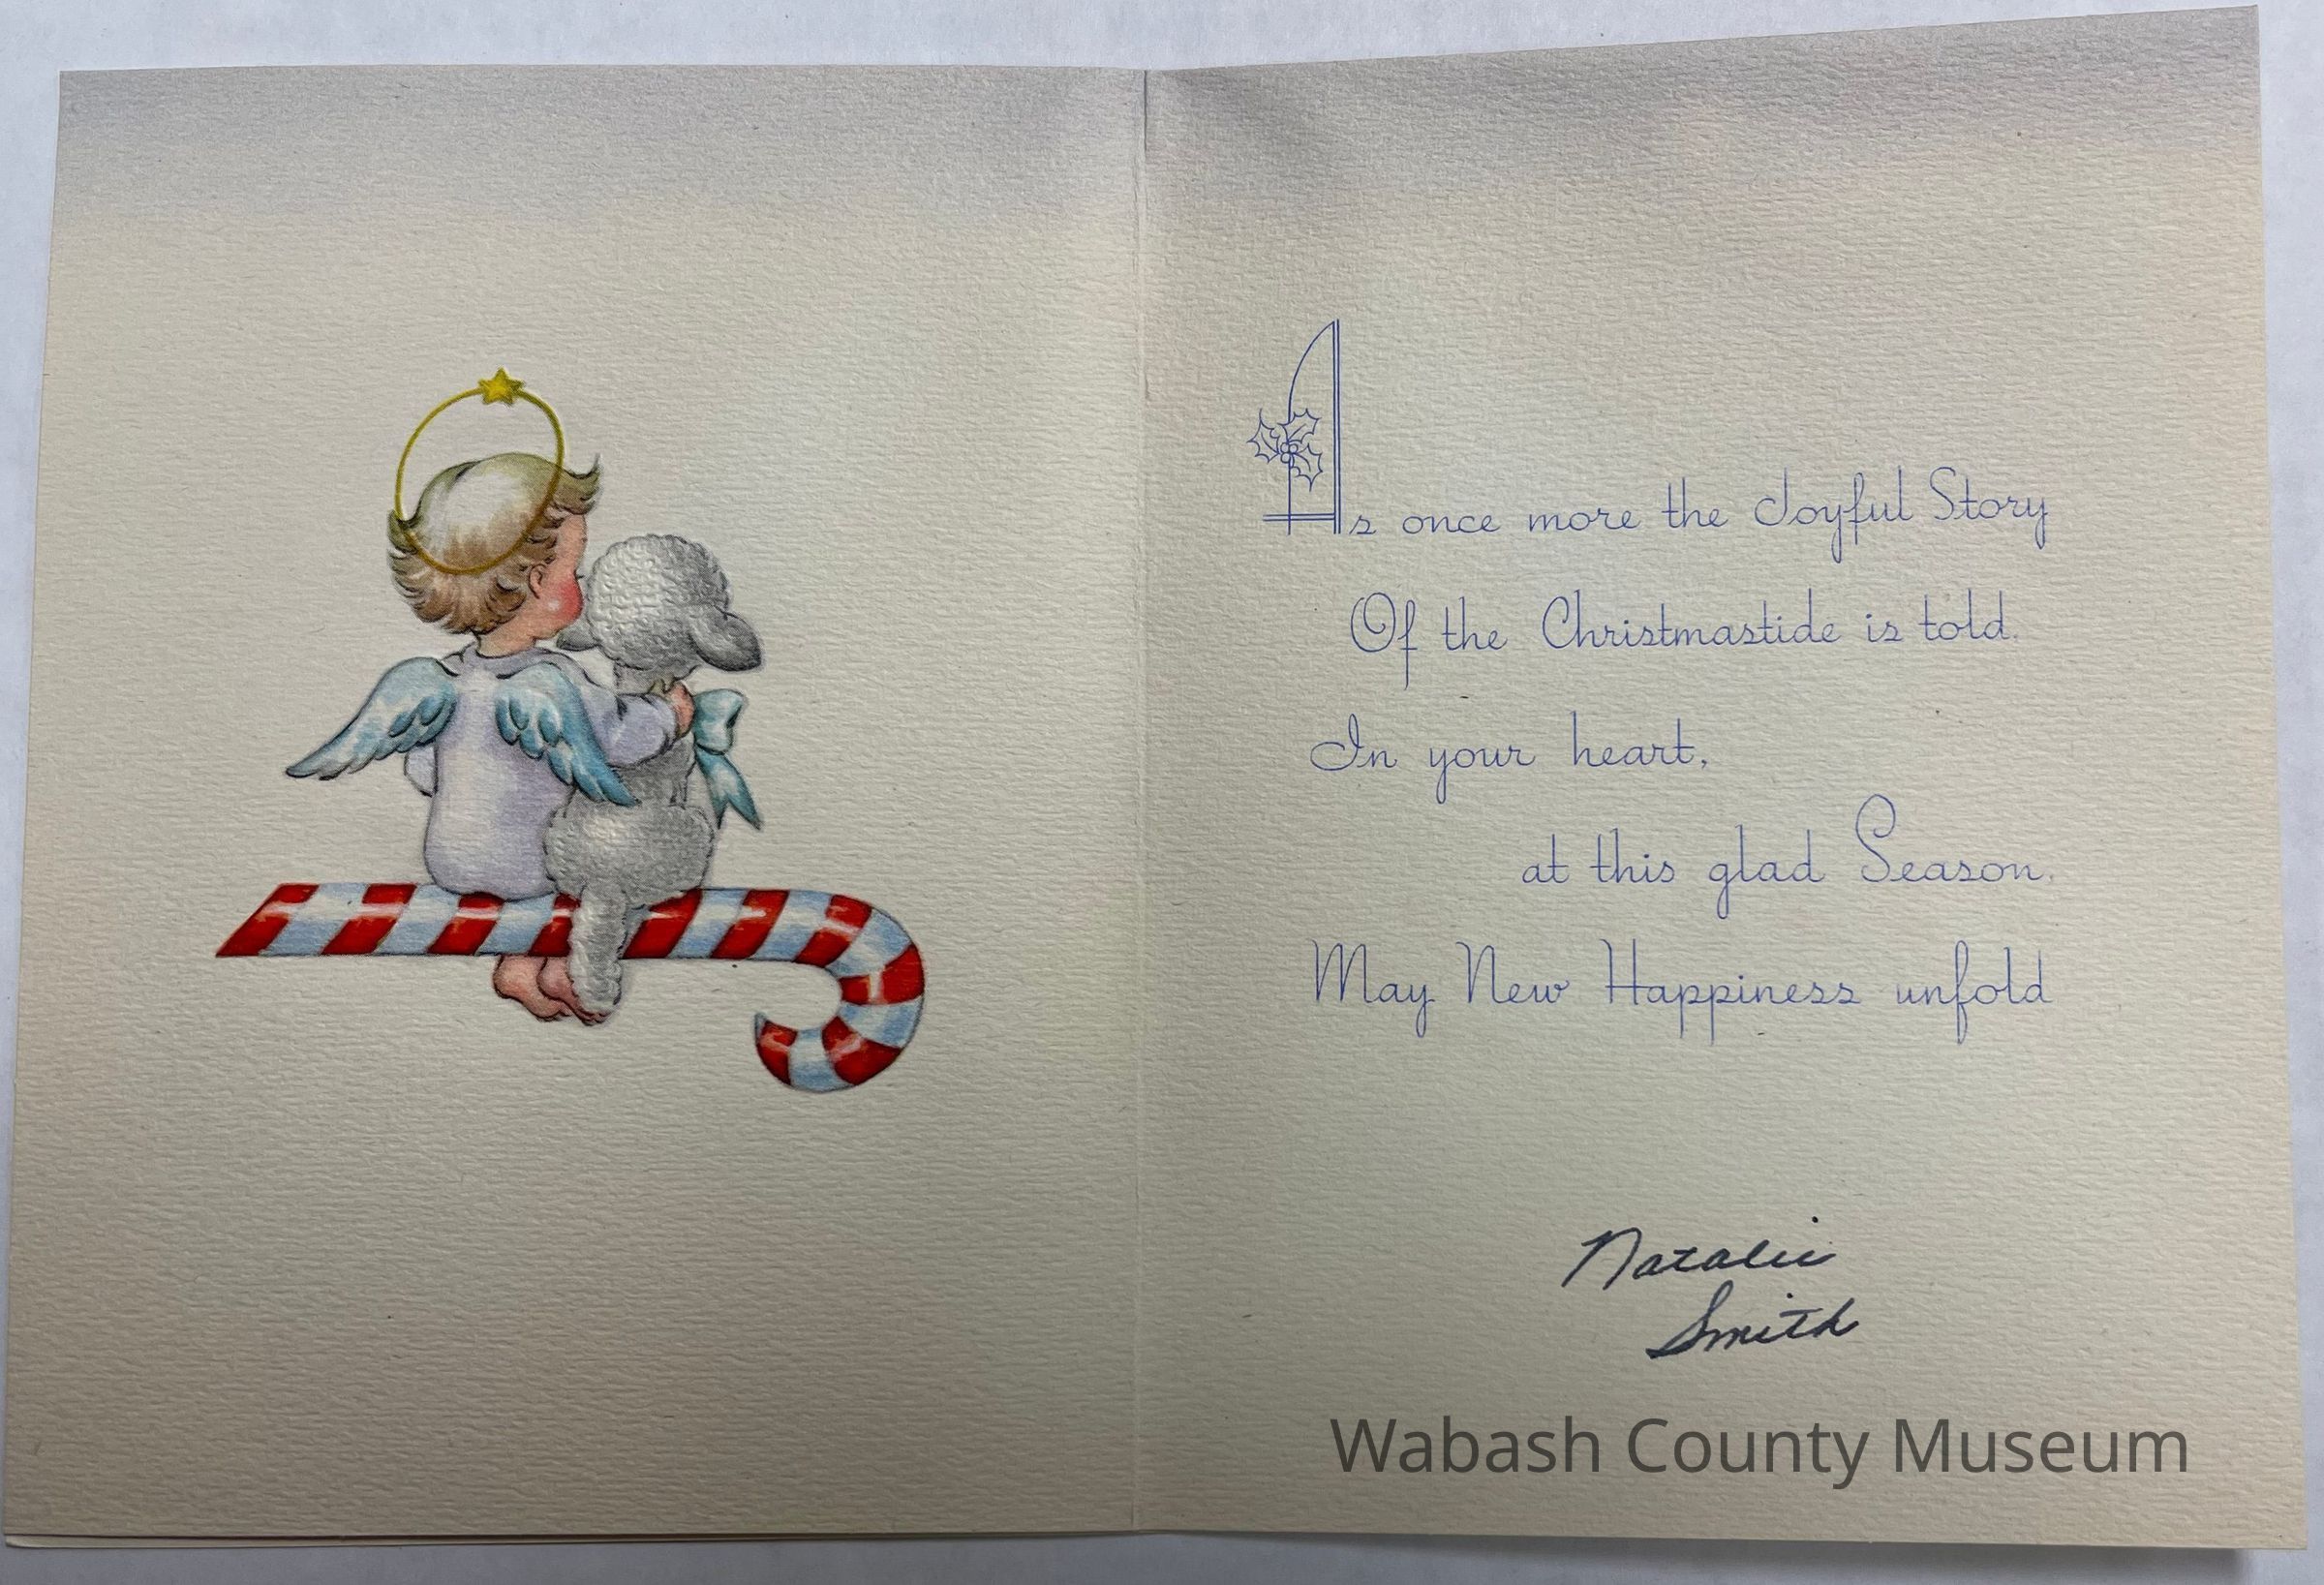 As once more the Joyful Story
Of the Christmastide is told.
In your heart,
at this glad Season.
May New Happiness unfold
Natalie
Smith
Wabash County Museum